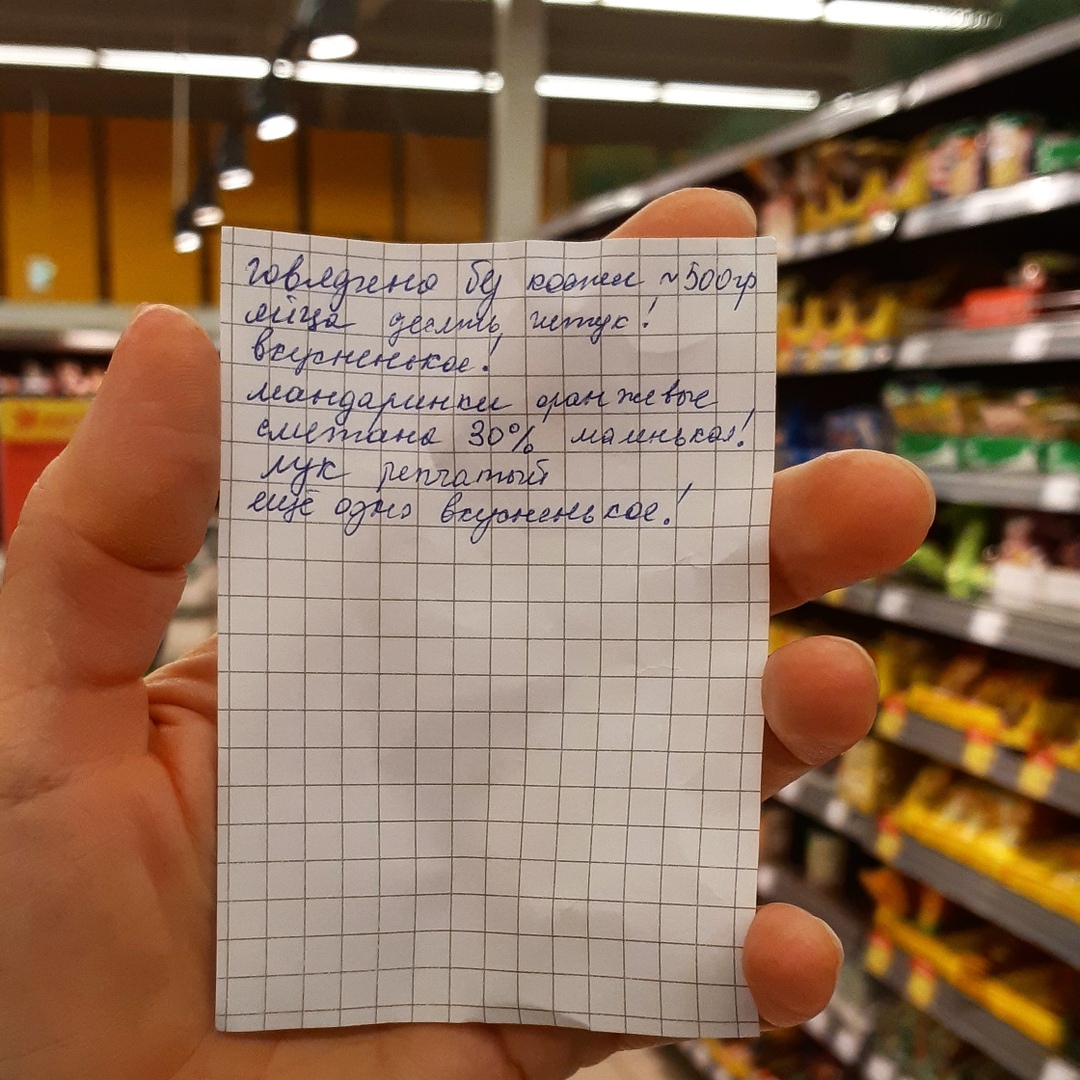 говядина без кожи ~500гр
яйца десять штук!
вкусненькое!
мандаринки оранжевые
сметана 30% маленькая!
лук репчатый
ещё одно вкусненькое!